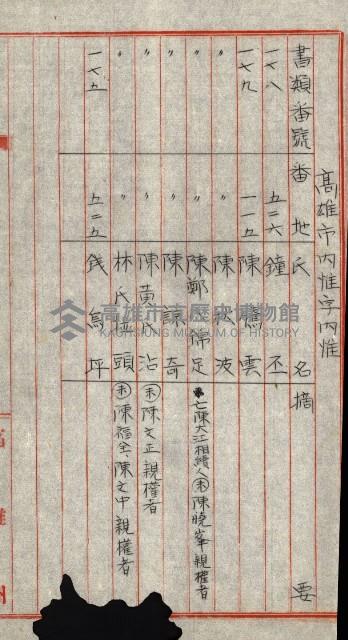 高雄市內惟字內惟
書類番號 番地 氏名 摘要
一七八 五二六 鐘丕
一七九 一一五 陳萬雲
〃 〃 陳 波
〃 〃 陳鄭 足 亡陳大江相續人(未)陳曉峯親權者
〃 〃 陳諒奇
〃 〃 陳黃氏沾 (未)陳文正親權者
〃 〃 林氏 頭 (未)陳福全、陳文中親權者
一七五 五二五 錢烏坪
高雄市立歷史博物館
KAOHSIUNG MUSEUM OF HISTORY
高雄州